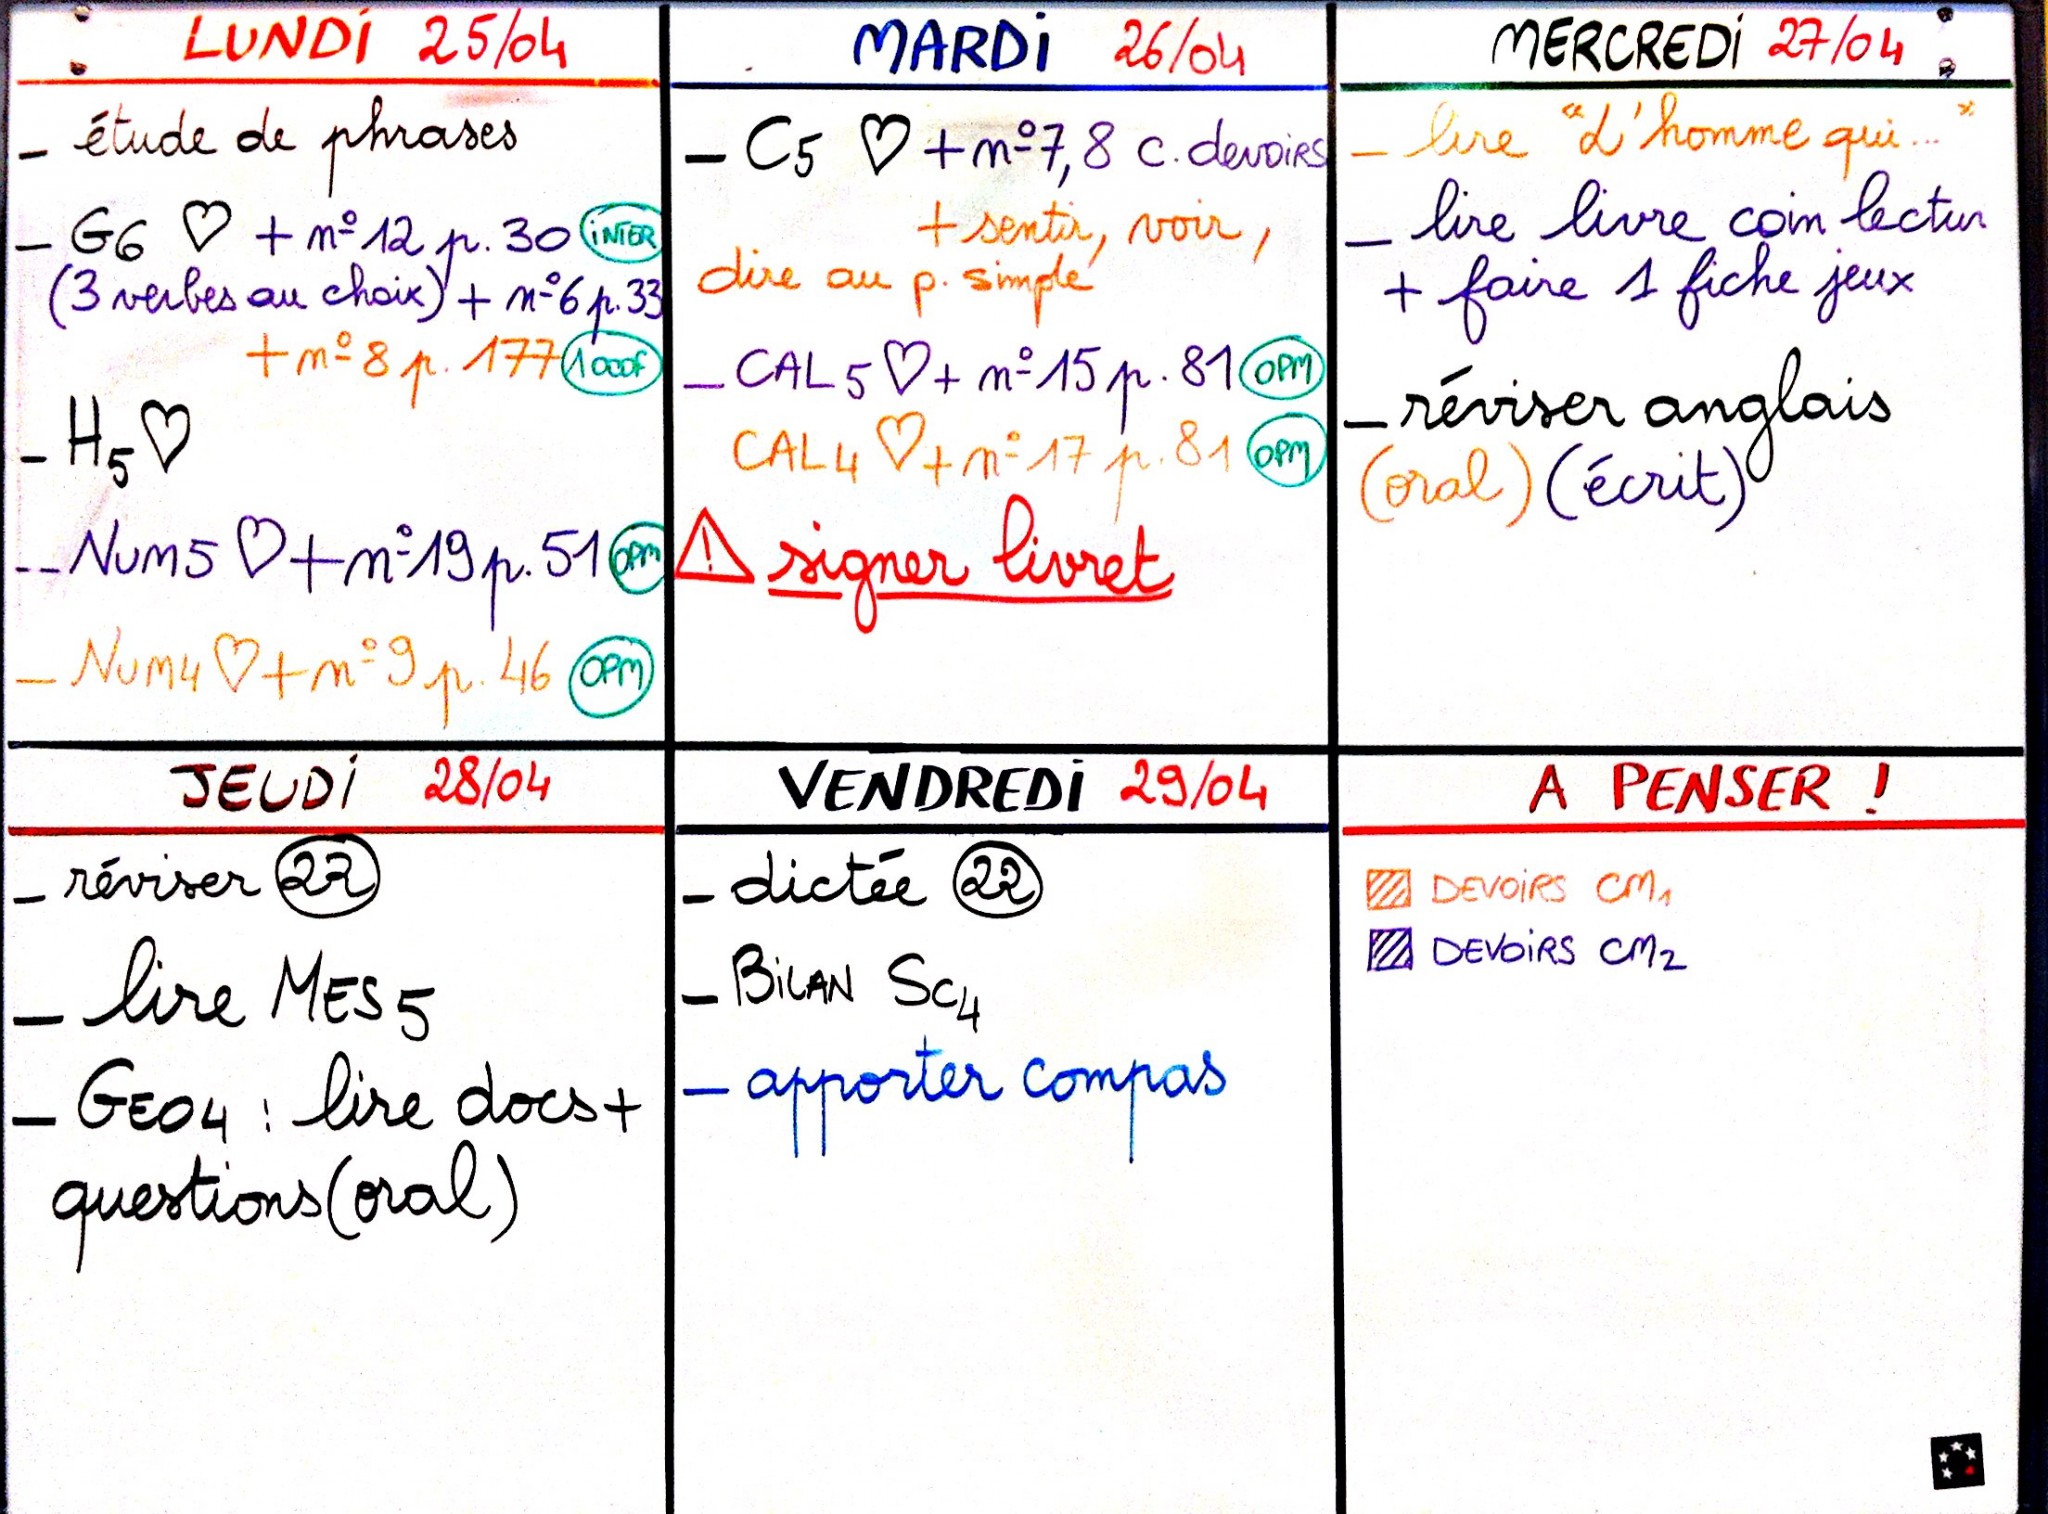 LUNDI 25/04
- étude de phrases
- G6 ♡ + n°12 p. 30 INTER
(3 verbes au choix) + n°6 p.33
+ n°8 p. 177 1000F
- H5 ♡
-- NUM5 ♡ + n°19 p. 51 OPM
- NUM4 ♡ + n°9 p. 46 OPM
MARDI 26/04
- C5 ♡ + n°7, 8 c. devoirs
+ sentir, voir,
dire au p. simple
- CAL5 ♡ + n°15 p. 81 OPM
CAL4 ♡ + n°17 p. 81 OPM
signer livret
MERCREDI 27/04
- lire "L'homme qui..."
- lire livre coin lectur
+ faire 1 fiche jeux
- réviser anglais
(oral) (écrit)
JEUDI 28/04
- réviser 22
- lire MES5
- GEO4 : lire docs +
questions (oral)
VENDREDI 29/04
- dictée 22
- BILAN SC4
- apporter compas
A PENSER !
DEVOIRS CM1
DEVOIRS CM2